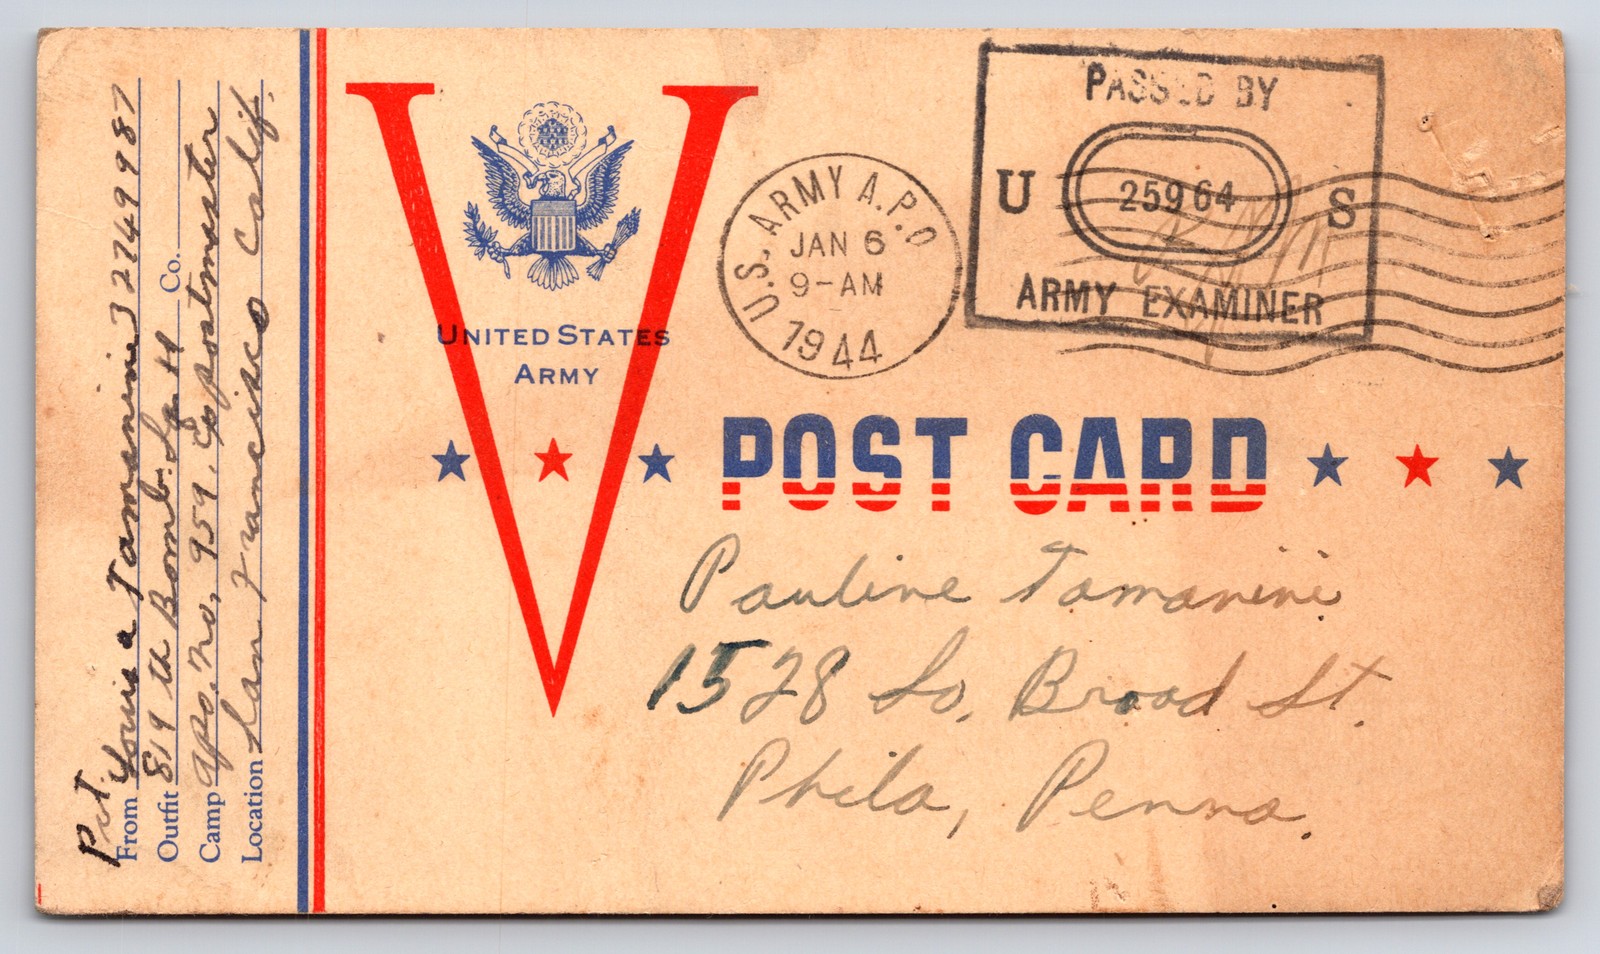 Pvt.
From Louis A Tamanini 32749987
Outfit 819 th Bomb. Sq. H Co.
Camp APO. No. 959, % Postmaster
Location San Francisco Calif.
UNITED STATES
ARMY
U.S. ARMY A.P.O
JAN 6
9-AM
1944
PASSED BY
U 25964 S
ARMY EXAMINER
POST CARD
Pauline Tamanini
1528 So. Broad St.
Phila, Penna.